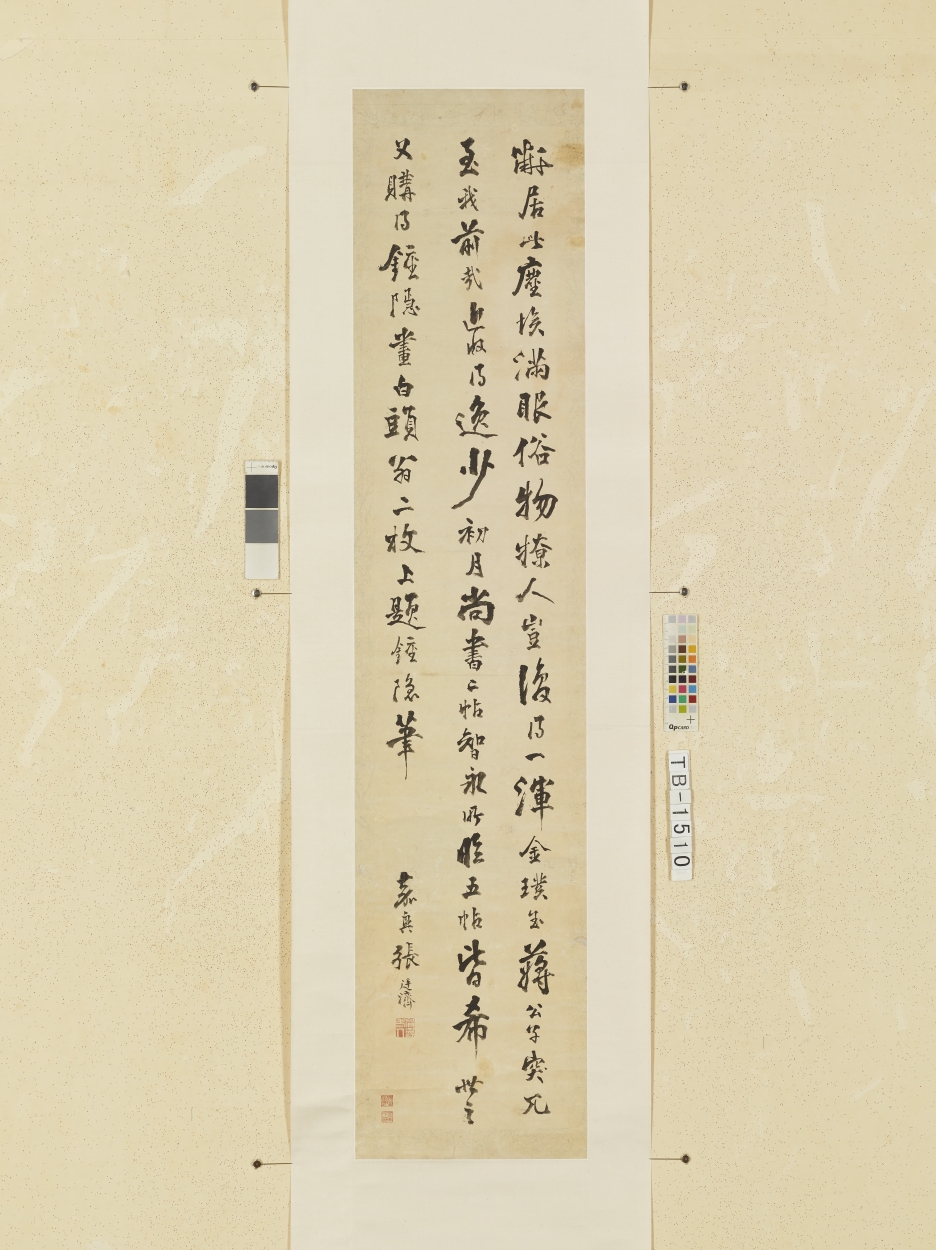 居此塵埃滿眼俗物撩人豈復得一渾金璞玉蔣公突兀
至我前哉近收得逸少初月尚書二帖智永所臨五帖皆希世
又購得鍾隱畫白頭翁二枚上題鍾隱筆
嘉興張廷濟
TB-1510